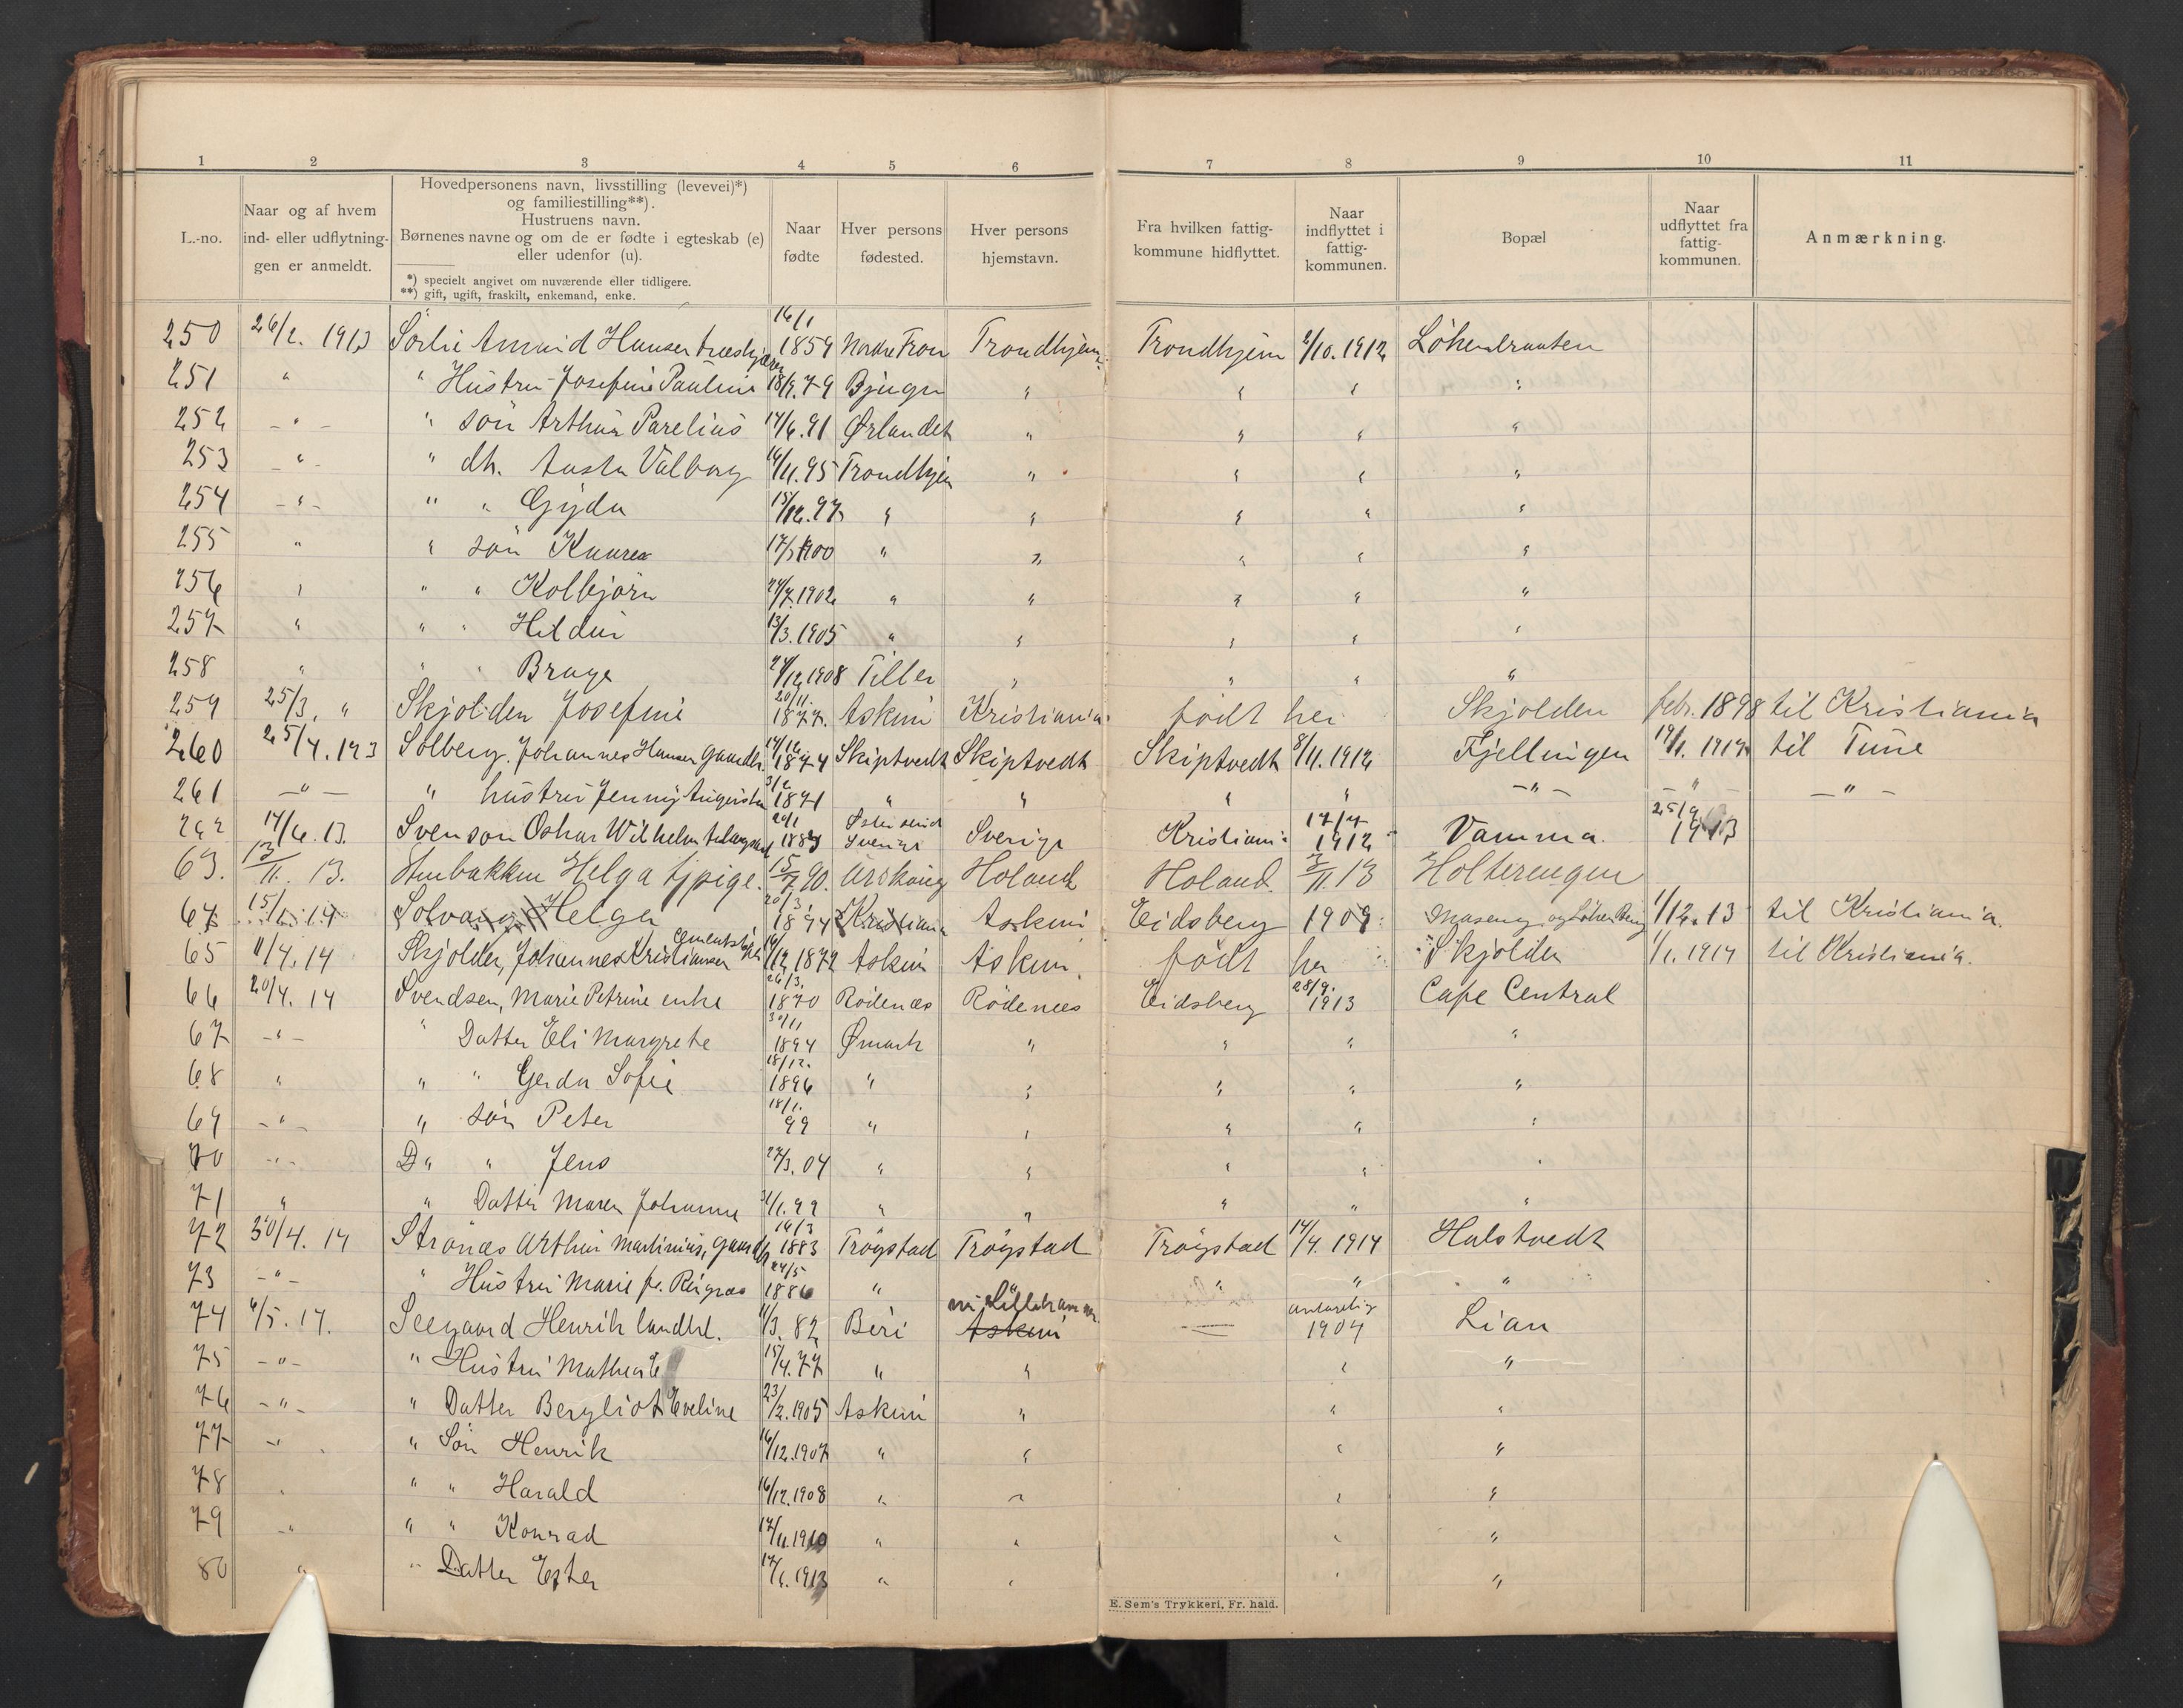 1 2 3 4 5 6 7 8 9 10 11
L.-no.
Naar og af hvem
ind- eller udflytnin-
gen er anmeldt.
Hovedpersonens navn, livsstilling (levevei)*)
og familiestilling**).
Hustruens navn.
Børnenes navne og om de er fødte i egteskab (e)
eller udenfor (u).
*) specielt angivet om nuværende eller tidligere.
**) gift, ugift, fraskilt, enkemand, enke.
Naar
fødte
Hver persons
fødested.
Hver persons
hjemstavn.
Fra hvilken fattig-
kommune hidflyttet.
Naar
indflyttet i
fattig-
kommunen.
Bopæl
Naar
udflyttet fra
fattig-
kommunen.
Anmærkning.
250 26/2. 1913 Sörlie Hansen 16/1 1859 Nordre Fron Trondhjem Trondhjem 2/10. 1912
251 " " Hustru Josefine Pauline 79 Bjugn " " " "
252 - " - " sön Arthur Parelius 91 Ørlandet " " " "
253 - " - " dtr. Valborg 95 Trondhjem " " " "
254 - " - " " Gyda 97 " " " " "
255 " " sön 1900 " " " " "
256 " " " Kolbjörn 1902 " " " " "
257 " " " Hildur 13/3. 1905 " " " " "
258 " " " Brage 1908 Tiller " " " "
259 25/3. " Skjolden Josefine 20/11. 1877. Askim Kristiania födt her Skjolden febr. 1898 til Kristiania
260 25/4. 193 Solberg. Johannes Hansen Skiptvedt Skiptvedt Skiptvedt 8/11. 1912 Fjellingen 1914 til Tune
261 - " - " hustru Jenny 1871 " " " " - " - " - " -
262 14/6. 13. Svenson Oskar Wilhelm Sverige Sverige Kristiania 1912 Vamma. 25/9 1913
63. 13/11. 13. Helga tjpige. 15/7 90. Urskoug Höland Höland. 13 Holterengen
64 15/1. 14 Solvang Helga 20/3. 1894 Kristiania Askim Eidsberg 1909 1/12. 13 til Kristiania.
65 11/4. 14 Skjolden, Johannes Kristiansen 1872 Askim Askim. födt her Skjolden 1/1. 1914 til Kristiania.
66 20/4. 14 Svendsen, Marie Petrine enke 26/3. 1870 Rödenæs Rödenees Eidsberg 28/9. 1913 Cafe Central
67 - " - " Datter Eli Margrete 30/11 1894 Ømark " " " "
68 " " " Gerda Sofie 18/12. 1896 " " " " "
69 - " - " sön Peter 18/1. 99 " " " " "
70 - " - D " " Jens 04 " " " " "
71 " " Datter Maren Johanne 99 " " " " "
72 30/4. 14 Strönæs Arthur Martinius, 1883 Tröystad Tröystad Tröystad 14/4. 1914 Halstvedt
73 - " - " Hustru Marie 24/5 1886 " " " " "
74 6/5. 14. Seegaard Henrik 82 Beri Lillehammer Askim 1904 Lian
75 - " - " Hustru Mathea 15/4. 77 " " " "
76 - " - " Datter Bergliot Eveline 23/2. 1905 Askim " " "
77 - " " Sön Henrik 16/12. 1907 " " " "
78 " " " Harald 16/12. 1908 " " " "
79 " " " Konrad 17/11. 1910 " " " "
80 " " Datter Ester 1913 " " " "
E. Sem's Trykkeri, Fr. hald.